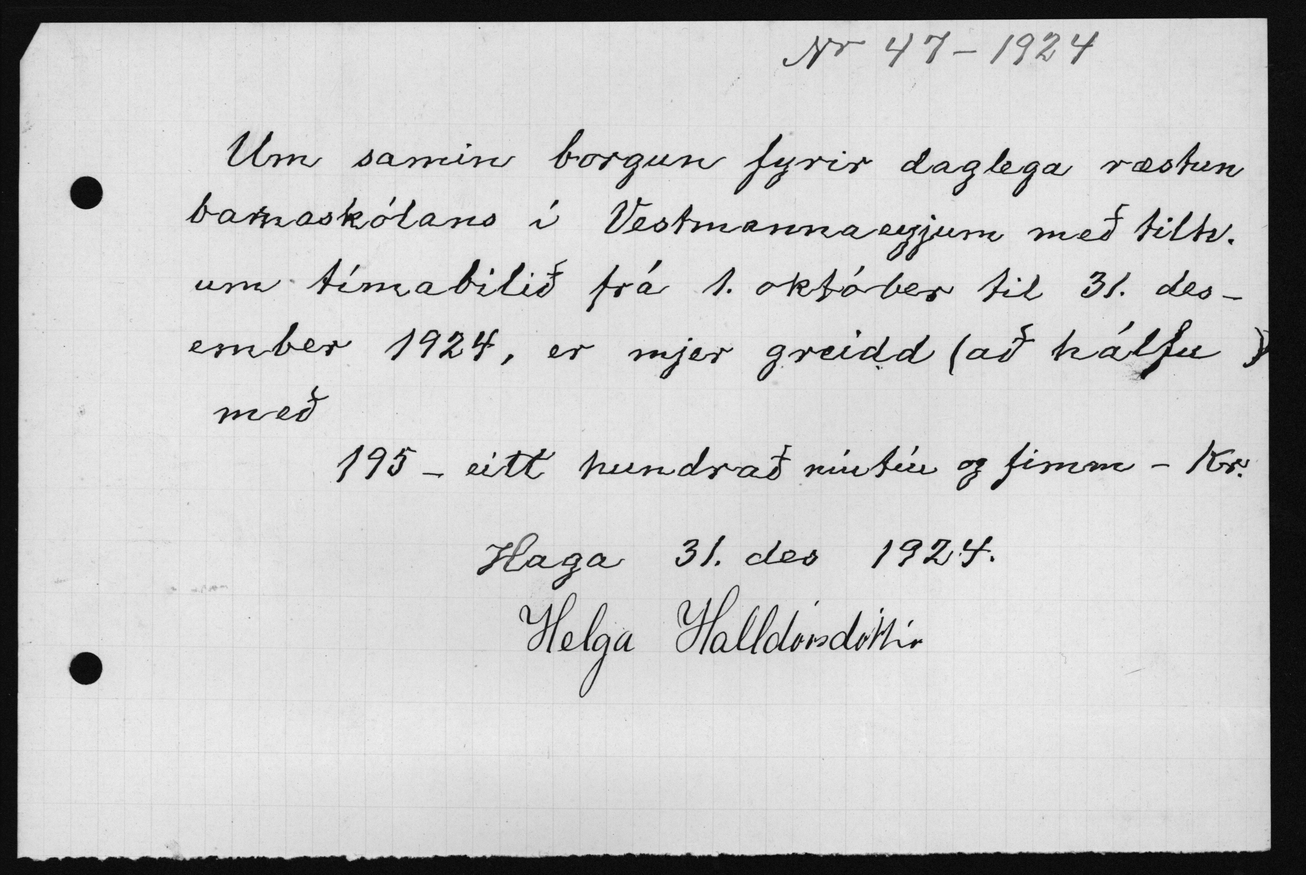 Nr 47 - 1924
Um samin borgun fyrir daglega ræstun
barnaskólans í Vestmannaeyjum með tilh.
um tímabilið frá 1. október til 31. des-
ember 1924, er mjer greidd (að hálfu)
með
195 - eitt hundrað níutíu og fimm - Kr.
Haga 31. des 1924.
Helga Halldórsdóttir